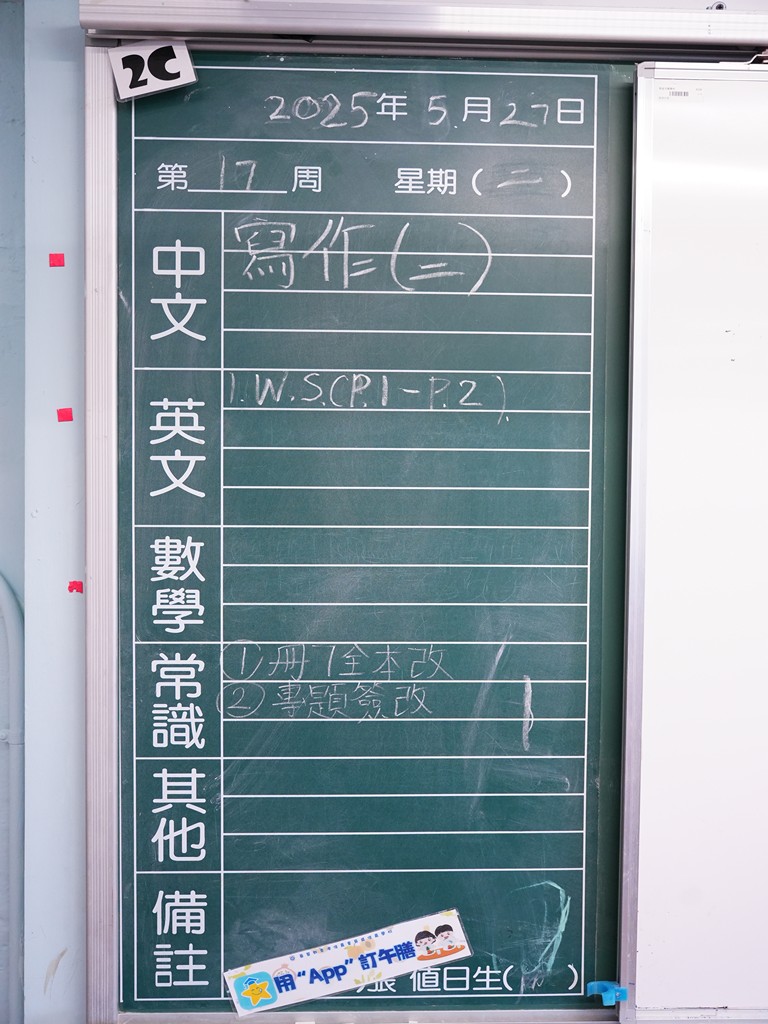 2C
2025年5月27日
第17周 星期(二)
中文 寫作(二)
英文 1.W.S.(P.1-P.2).
數學
常識 ①冊7全本改
②專題簽改
其他
備註
用“App”訂午膳
張 值日生( )